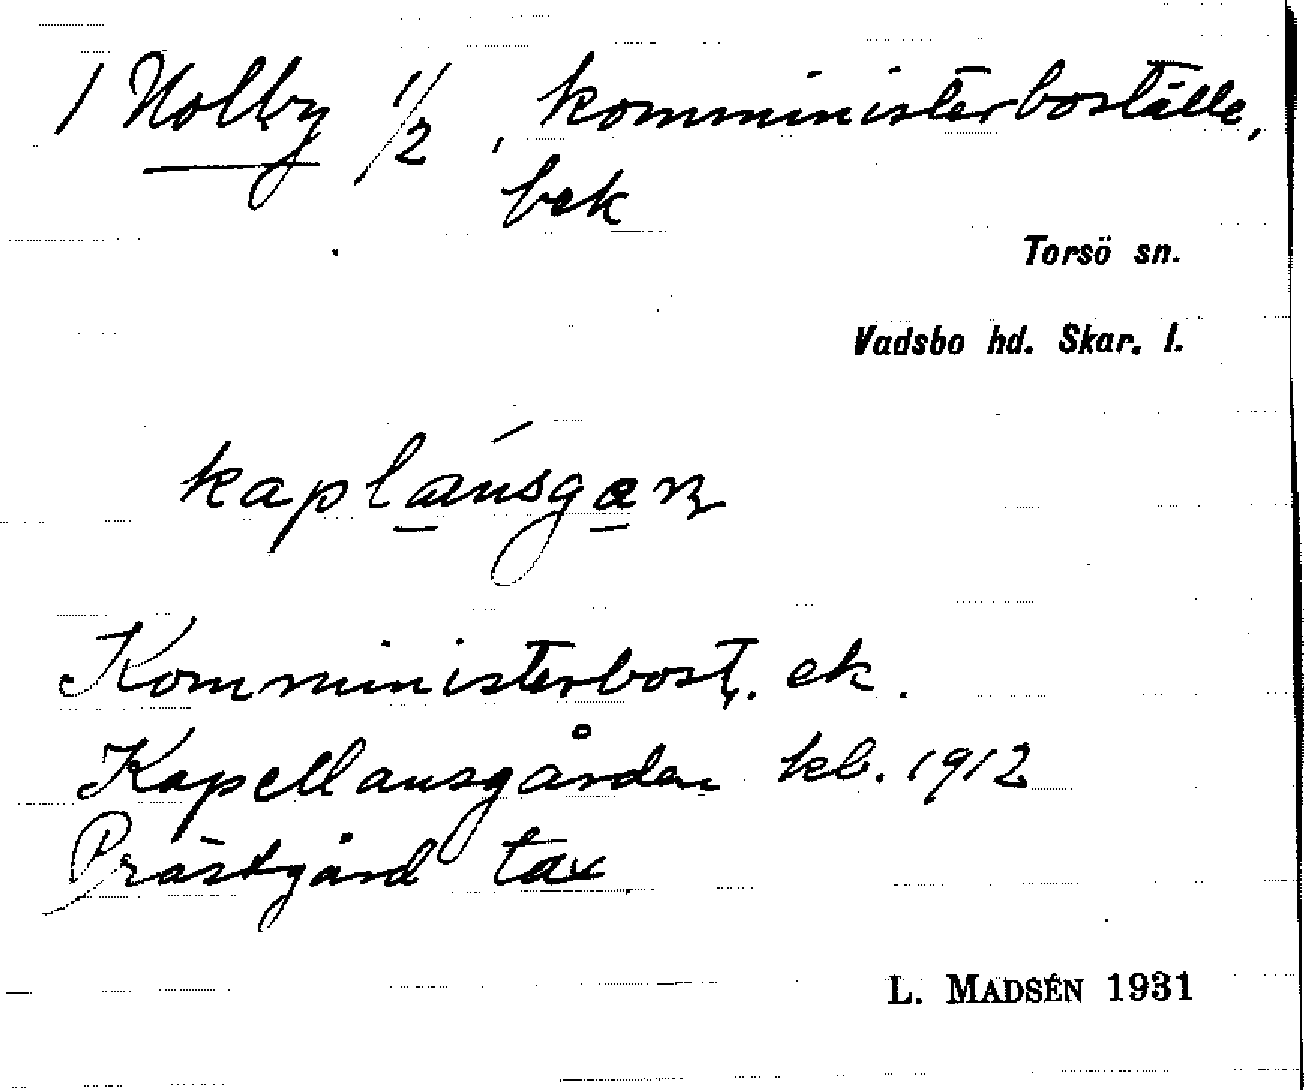 1 Nolby 1/2, komministerboställe,
bek
Torsö sn.
Vadsbo hd. Skar. l.
kaplánsgan
Komministerbost. ek.
Kapellansgården kb. 1912
Prästgård tax
L. MADSÉN 1931